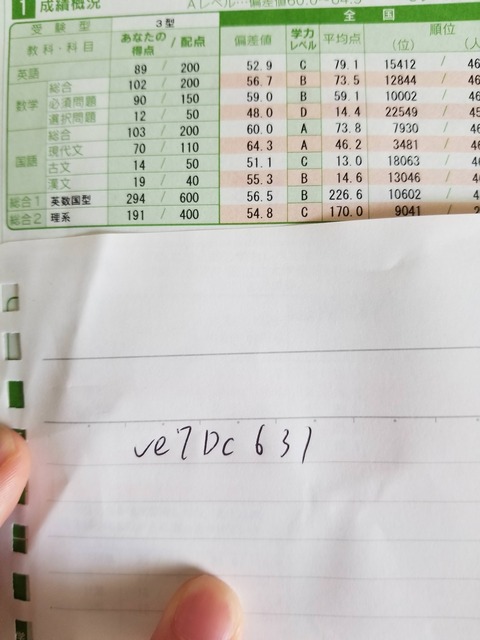 1 成績概況 Aレベル…偏差値60.0~64.9
受験型 3型 全国
教科・科目 あなたの得点 / 配点 偏差値 学力レベル 平均点 順位
(位) / (人
英語 89 / 200 52.9 C 79.1 15412 / 46
数学 総合 102 / 200 56.7 B 73.5 12844 / 46
必須問題 90 / 150 59.0 B 59.1 10002 / 46
選択問題 12 / 50 48.0 D 14.4 22549 / 45
国語 総合 103 / 200 60.0 A 73.8 7930 / 46
現代文 70 / 110 64.3 A 46.2 3481 / 46
古文 14 / 50 51.1 C 13.0 18063 / 46
漢文 19 / 40 55.3 B 14.6 13046 / 46
総合1 英数国型 294 / 600 56.5 B 226.6 10602 / 4
総合2 理系 191 / 400 54.8 C 170.0 9041 /
ve7Dc631